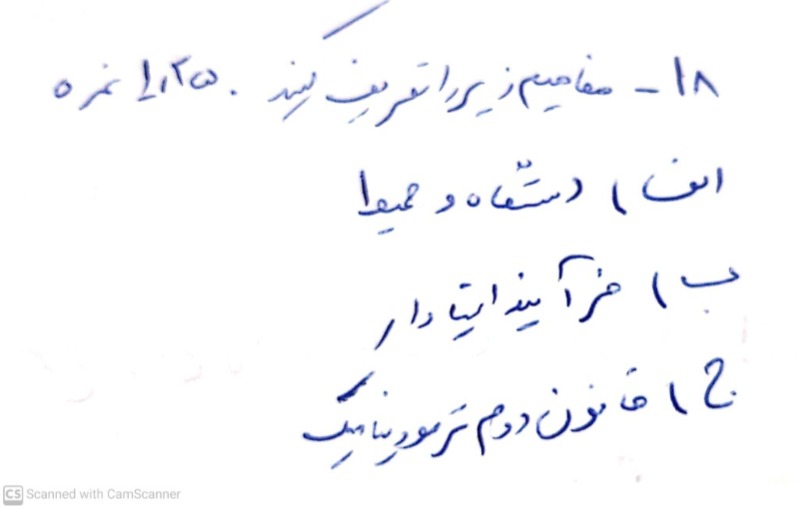 ۱۸- مفاهیم زیر را تعریف کنید. ۱٫۲۵ نمره
الف) دستگاه و محیط
ب) فرآیند ایستاوار
ج) قانون دوم ترمودینامیک
CS Scanned with CamScanner